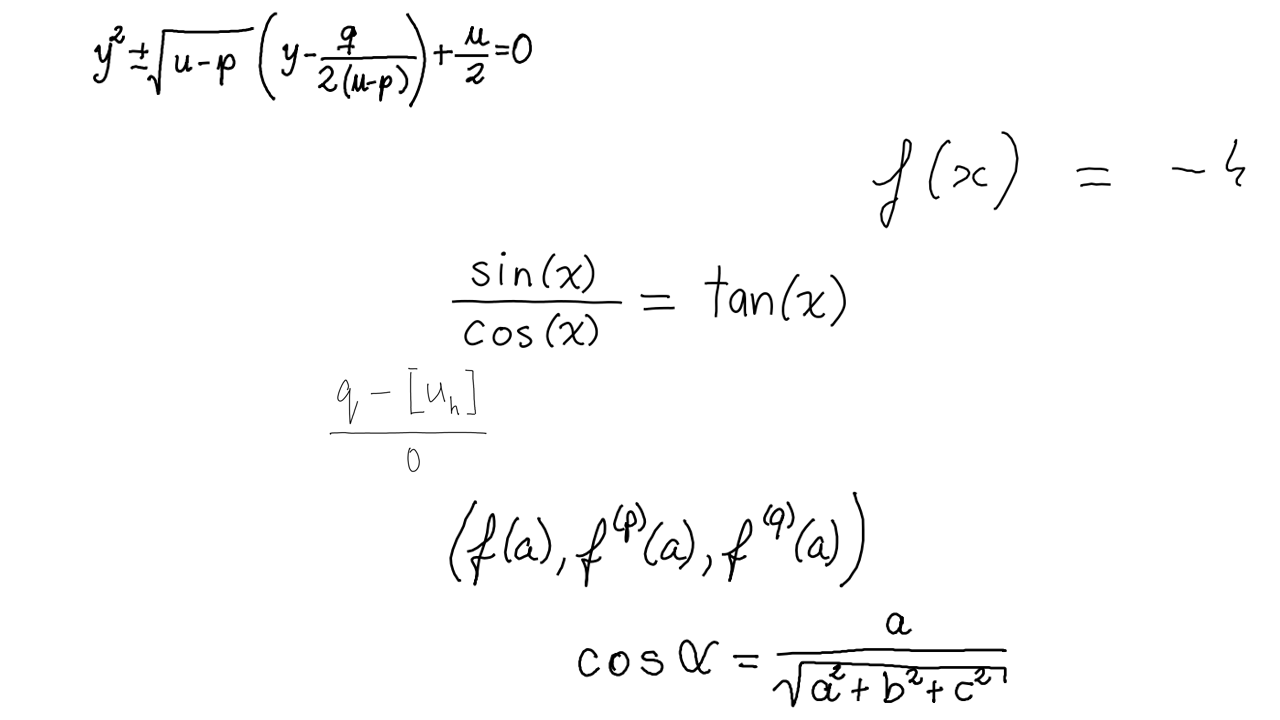 y² ± √(u-p) (y - q/(2(u-p))) + u/2 = 0
f(x) = -
sin(x)/cos(x) = tan(x)
(q - [u_h])/0
(f(a), f^(p)(a), f^(q)(a))
cos α = a/√(a² + b² + c²)